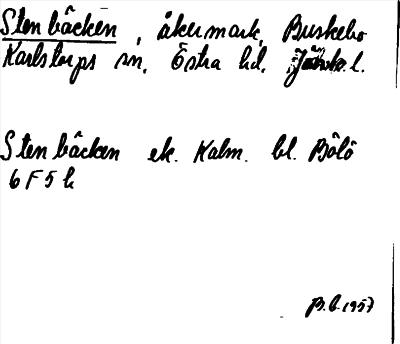 Stenbäcken, åkermark, Buskebo
Karlstorps sn. Östra hd. Jönk. l.
Stenbäcken ek. Kalm. bl. Bölö
6 F 5 h
1957